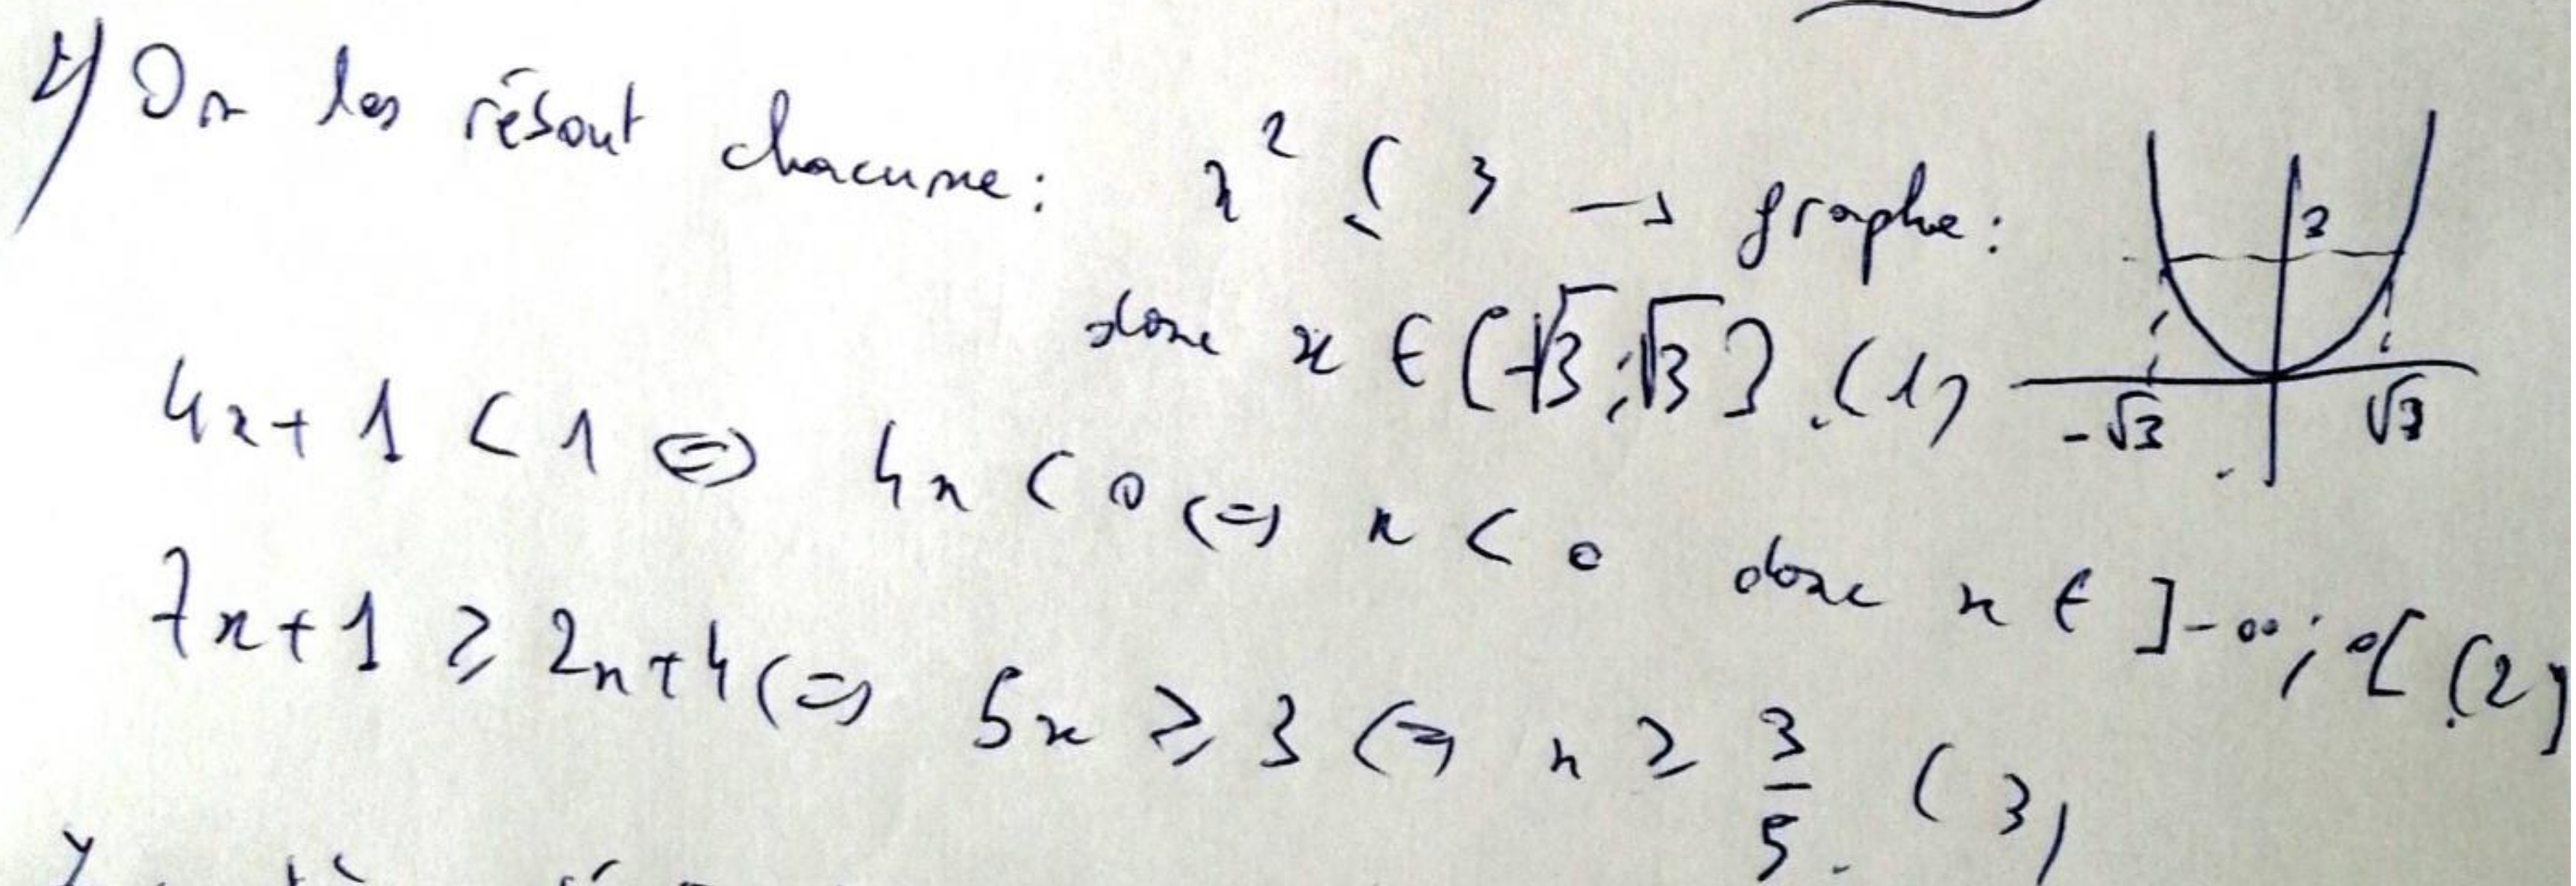 2) On les résout chacune : x² ≤ 3 → graphe :
3
donc x ∈ [-√3 ; √3]. (1)
-√3 √3
4x + 1 < 1 ⇔ 4x < 0 ⇔ x < 0 donc x ∈ ]-∞ ; 0[ (2)
7x + 1 ≥ 2x + 4 ⇔ 5x ≥ 3 ⇔ x ≥ 3/5. (3)